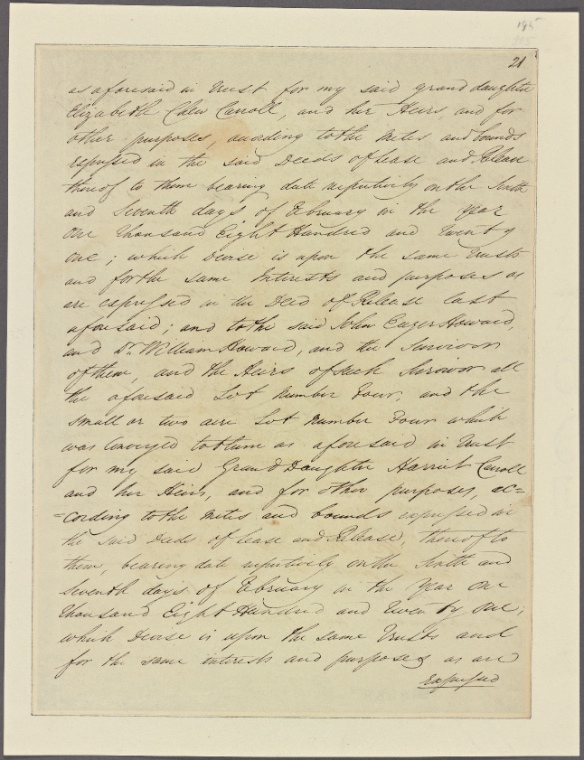 195
21
as aforesaid in Trust for my said grand daughter
Elizabeth Calew Carroll, and her Heirs, and for
other purposes, according to the metes and bounds
expressed in the said Deeds of lease and Release
thereof to them bearing date respectively on the Sixth
and Seventh days of February in the year
One Thousand Eight Hundred and Twenty
one; which Devise is upon the same Trusts
and for the same Interests and purposes as
are expressed in the Deed of Release last
aforesaid; and to the said John Eager Howard,
and Dr. William Howard, and the Survivor
of them, and the Heirs of such Survivor all
the aforesaid Lot Number Four, and the
small or two acre Lot Number Four which
was Conveyed to them as aforesaid in Trust
for my said Grand Daughter Harriet Carroll
and her Heirs, and for other purposes, ac=
=cording to the metes and bounds expressed in
the said Deeds of lease and Release, thereof to
them, bearing date respectively on the Sixth and
Seventh days of February in the Year One
Thousand Eight Hundred and Twenty One;
which Devise is upon the same Trusts and
for the same interests and purposes as are
Expressed